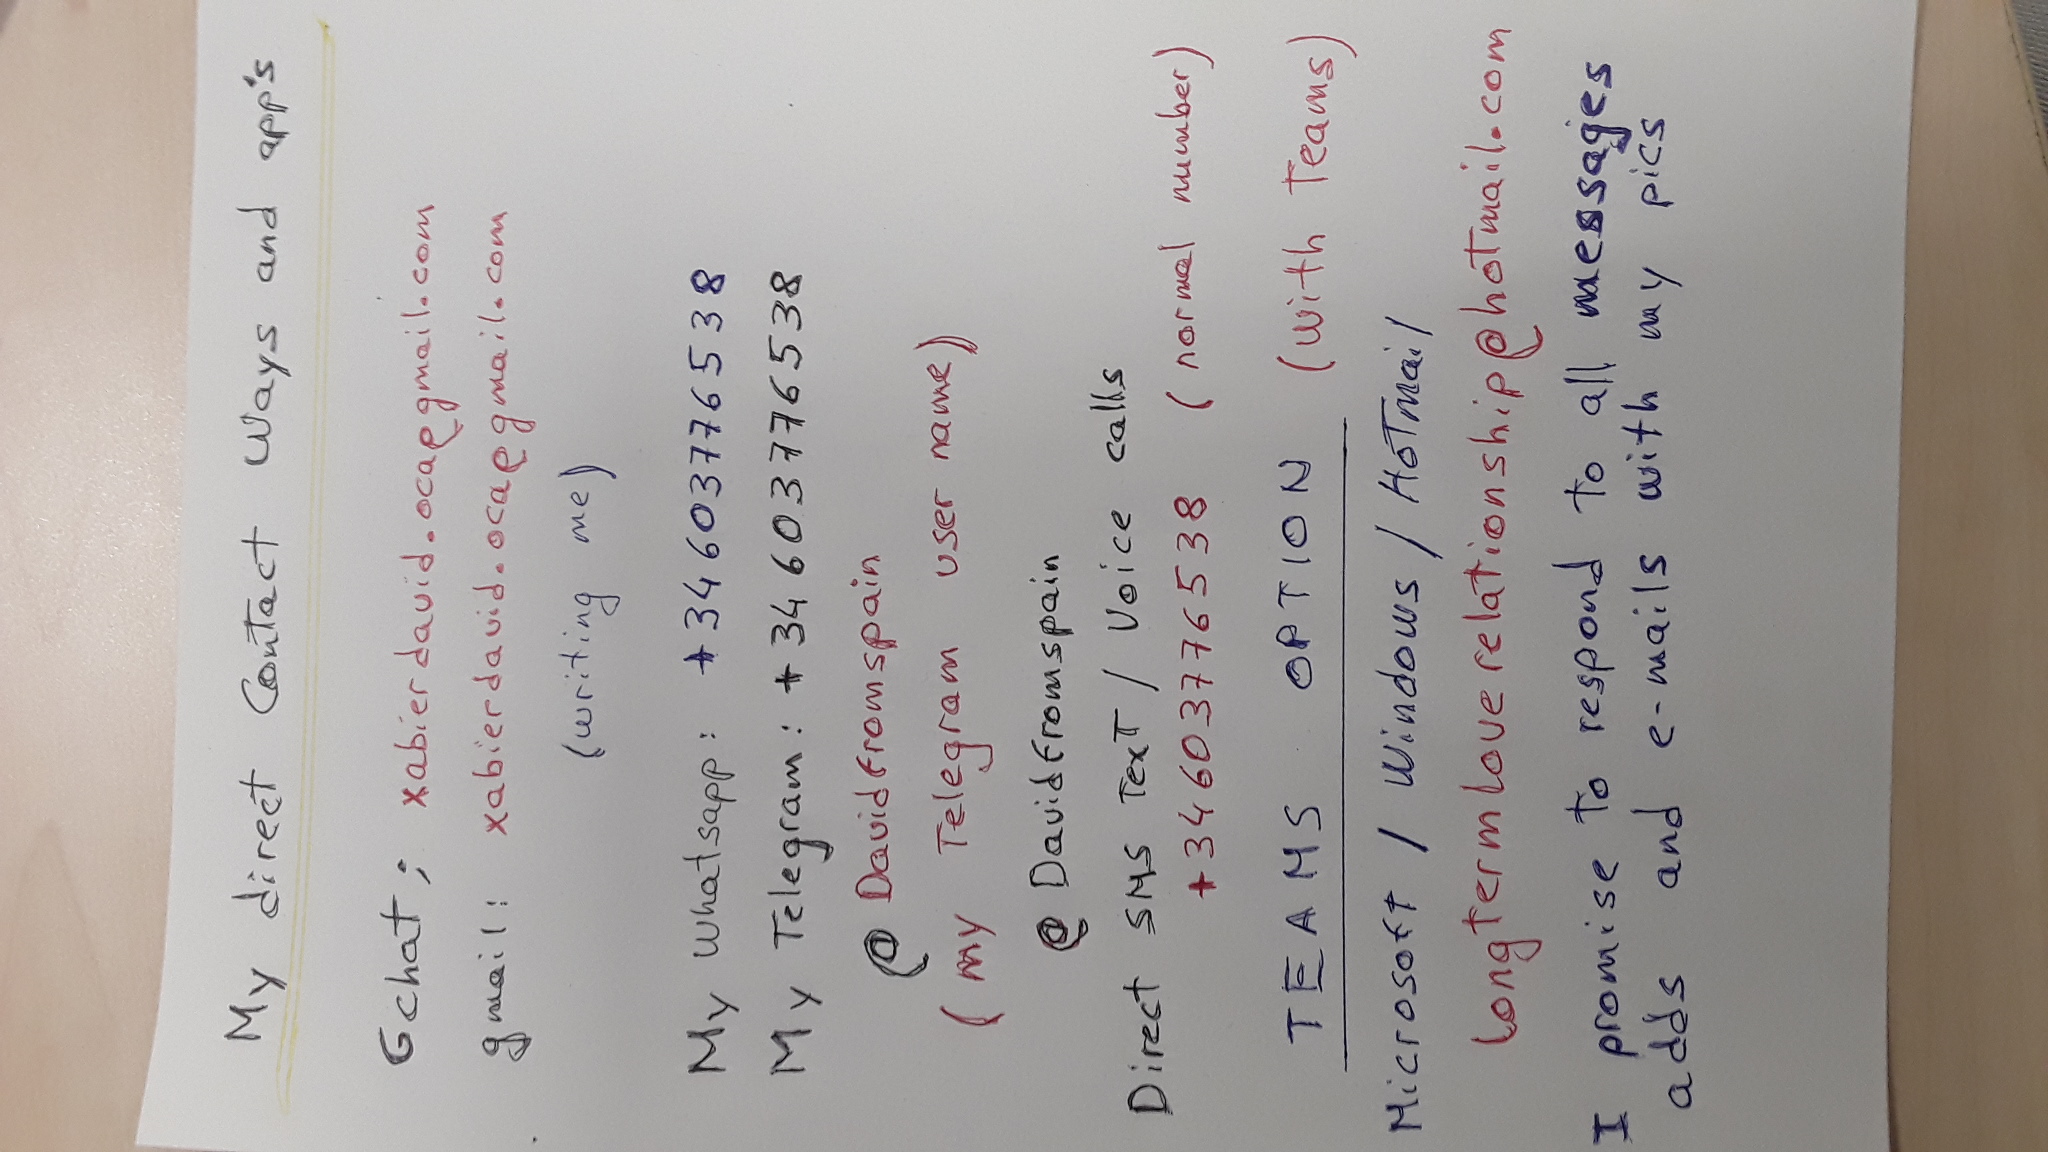 My direct Contact Ways and app's
Gchat; xabierdavid.oca@gmail.com
gmail: xabierdavid.oca@gmail.com
(writing me)
My Whatsapp: +34603776538
My Telegram: +34603776538
@Davidfromspain
(my Telegram user name)
@Davidfromspain
Direct SMS Text / Voice calls
+34603776538 (normal number)
TEAMS OPTION (with Teams)
Microsoft / Windows / Hotmail
longtermloverelationship@hotmail.com
I promise to respond to all messages
adds and e-mails with my pics